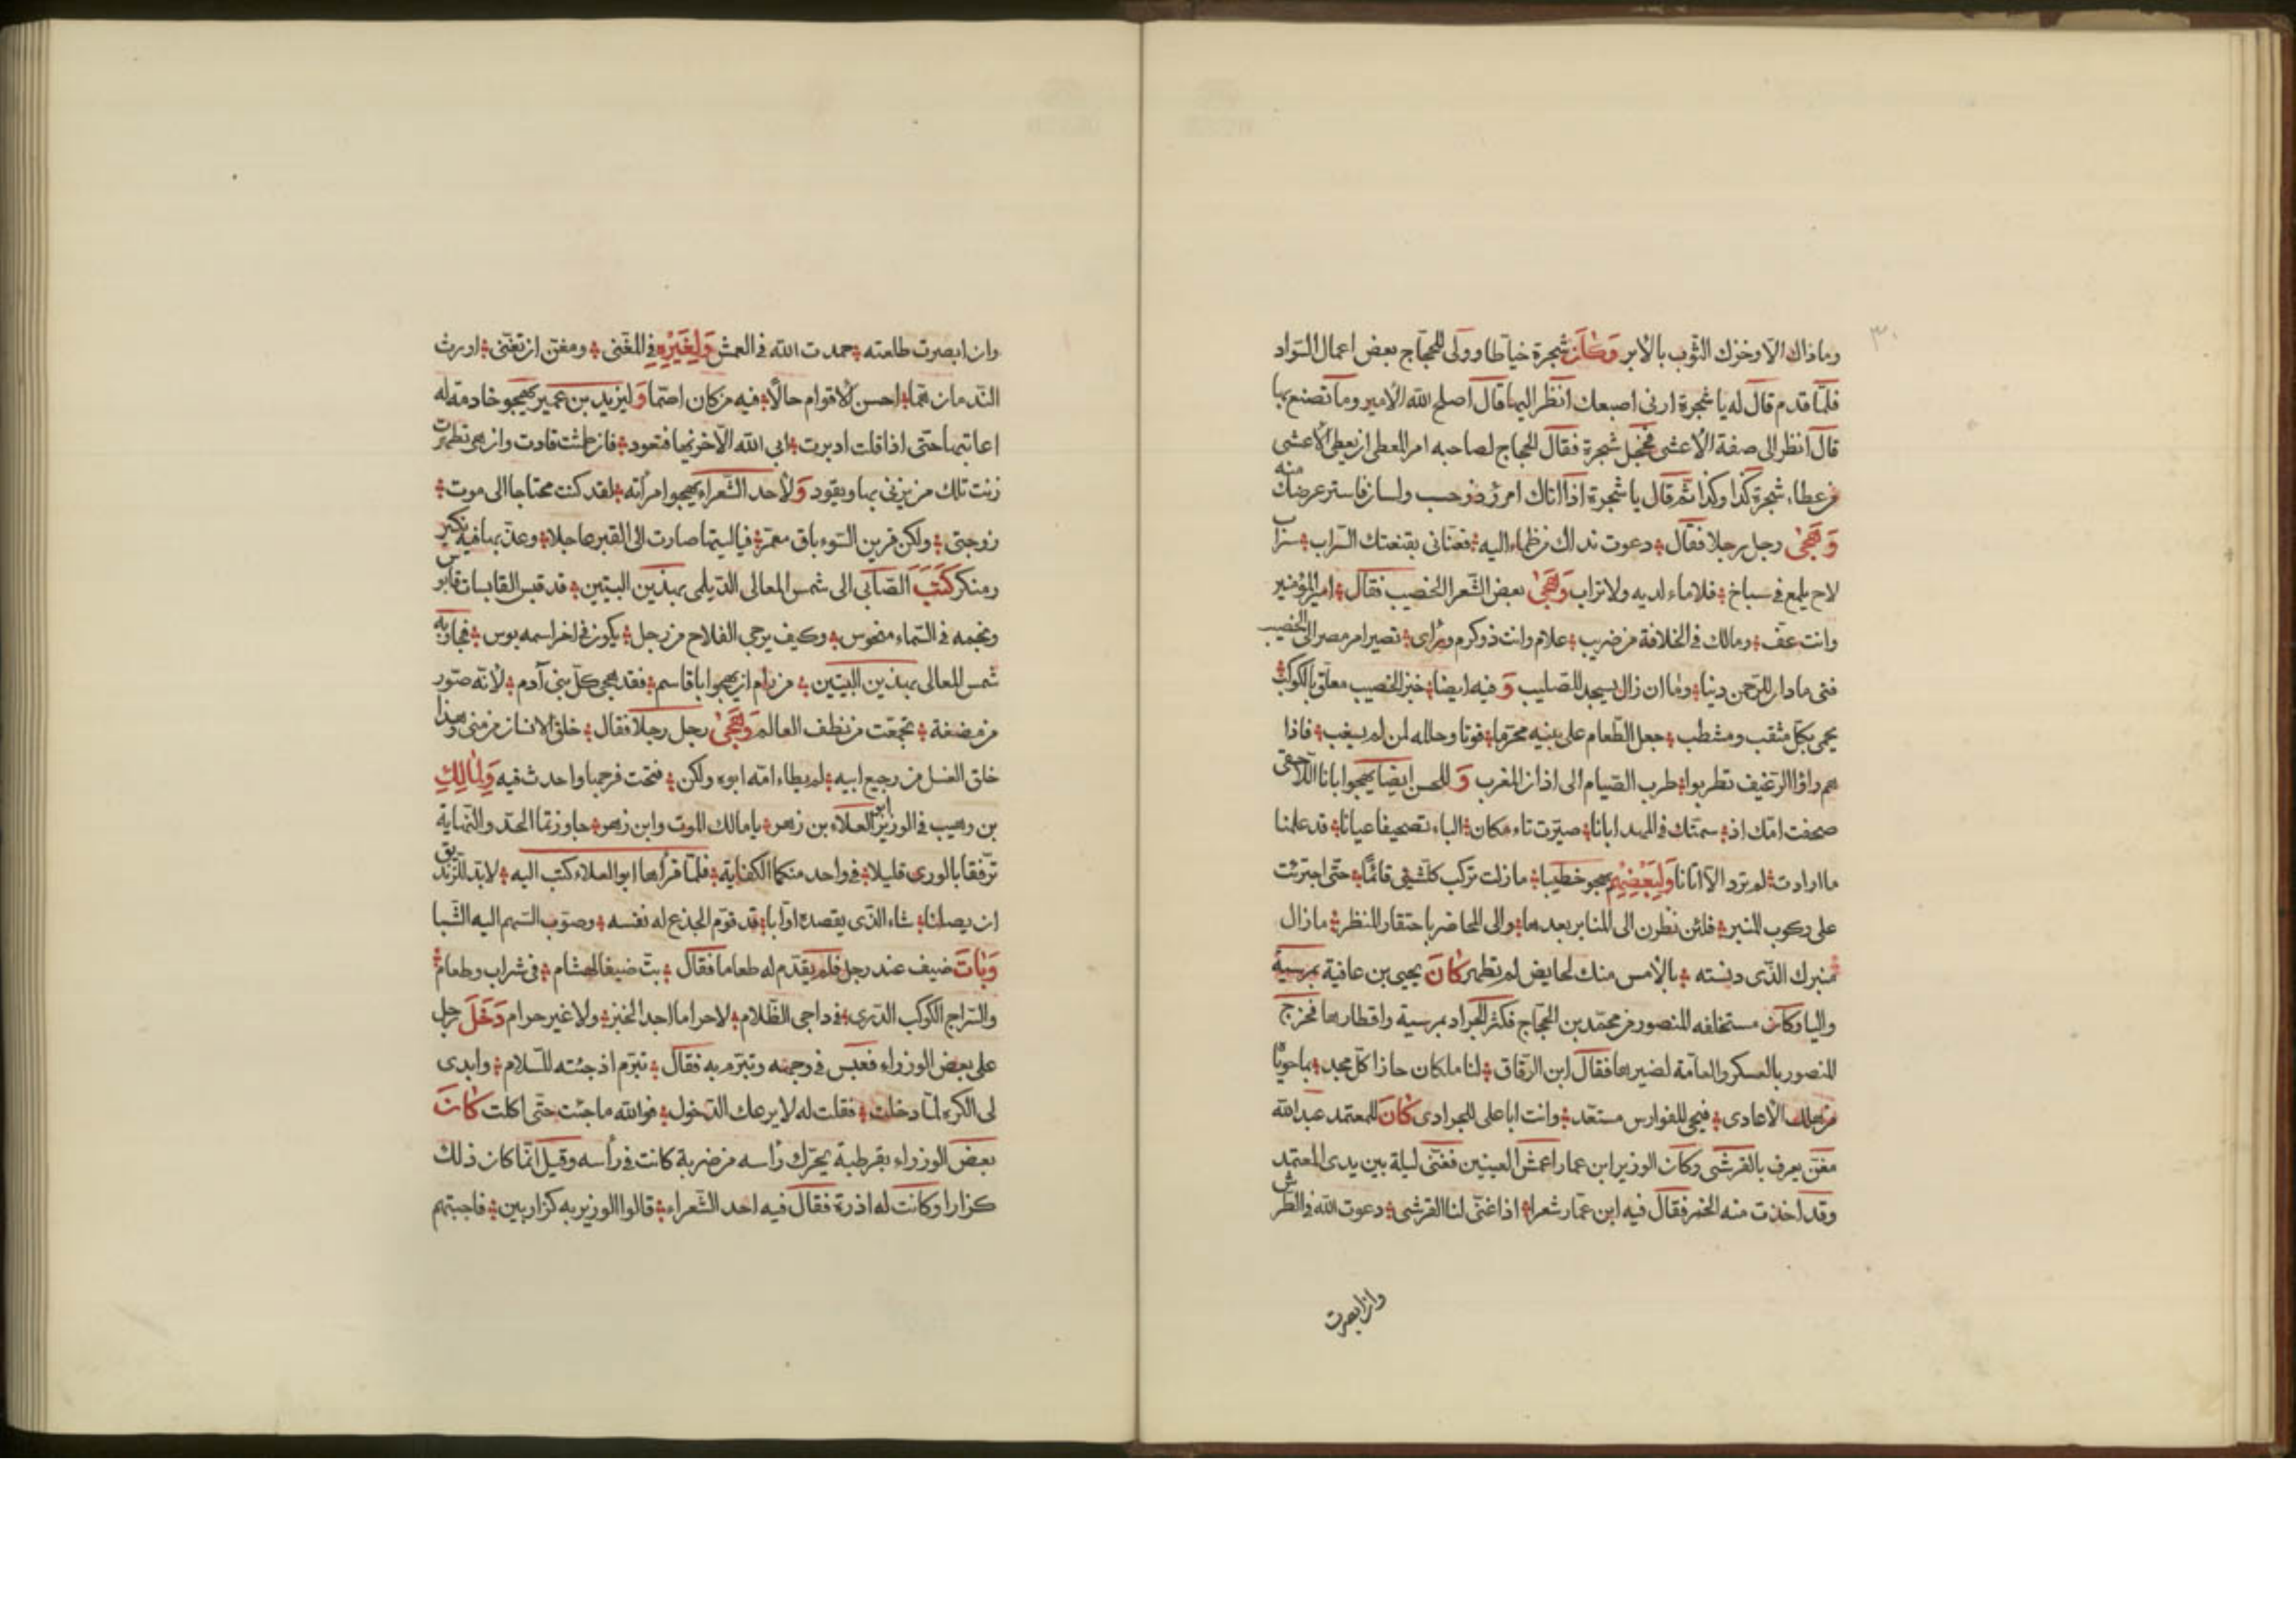 ٣٠
وماذاك الا وخزك الثوب بالابر وكان شجرة خياطا وولى للحجاج بعض اعمال السواد
فلما قدم قال له يا شجرة ارنى اصبعك انظر اليها قال اصلح الله الامير وما تصنع بها
قال انظر الى صفة الاعشى فخجل شجرة فقال الحجاج لصاحبه امر المعطى ان يعطى الاعشى
من عطاء شجرة كذا وكذا ثم قال يا شجرة اذا اتاك امرؤ ذو حسب ولسان فاستر عرضك منه
وهجى رجل رجلا فقال دعوت نداك من ظماء اليه فعنانى بقنعتك السراب سراب
لاح يلمع فى سباخ فلا ماء لديه ولا تراب وهجى بعض الشعر الخصيب فقال امير المؤمنين
وانت عف ومالك فى الخلافة من ضريب علام وانت ذو كرم وراى تصير امر مصر الى الخصيب
فتى مادان للرحمن دينا وما ان زال يسجد للصليب وفيه ايضا خبز الخصيب معلق بالكوكب
يحمى بكل مثقب ومشطب جعل الطعام على بنيه محرما قوتا وحلله لمن لم يسغب فاذا
هم راؤا الرغيف تطربوا طرب الصيام الى اذان المغرب و للحسن ايضا يهجوا بانا اللاحقى
صحفت امك اذ سمتك فى المهد ابانا صيرت تاء مكان الباء تصحيفا عيانا قد علمنا
ما ارادت لم ترد الا اتانا ولبعضهم يهجو خطيبا ما زلت تركب كلشئ قائما حتى اجترئت
على ركوب المنبر فلئن نظرن الى المنابر بعدها والى المحاضر باحتقار المنظر ما زال
منبرك الذى دنسته بالامس منك لحايض لم تطهر كان يحيى بن عافية بمرسية
واليا وكان مستخلفه المنصور من محمد بن الحجاج فكثر الجراد بمرسية واقطارها فخرج
المنصور بالعسكر والعامة لضيرها فقال ابن الرقاق لنا ملكان حازا كل مجد بما حويا
من هلك الاعادى فيحيى للفوارس مستعد وانت ابا على للجرادى كان للمعتمد عبد الله
مغن يعرف بالقرشى وكان الوزير ابن عمار اعمش العينين فغنى ليلة بين يدى المعتمد
وقد اخذت منه الخمر فقال فيه ابن عمار شعرا اذا غنى لنا القرشى دعوت الله فى الطرش
وان ابصرت
وان ابصرت طلعته حمدت الله فى العمش ولغيره فى المغنى ومغن ان تغنى اورث
الندمان هما احسن الاقوام حالا فيه من كان اصما وليزيد بن عمير يهجو خادمة له
اعاتبها حتى اذا قلت ادبرت ابى الله الا خزيها فتعود فان طمثت قادت وان هى تطهرت
زنت تلك من يزنى بها ويقود ولاحد الشعراء يهجوا امرأته لقد كنت محتاجا الى موت
زوجتى ولكن قرين السوء باق معمر فيا ليتها صارت الى القبر عاجلا وعذبها فيه نكير
ومنكر كتب الصابى الى شمس المعالى الديلمى بهذين البيتين قد قبس القابسات قابوس
ونجمه فى السماء منحوس وكيف يرجى الفلاح من رجل يكون فى اخر اسمه بوس فجاوبه
شمس المعالى بهذين البيتين من رام ان يهجوا ابا قاسم فقد هجى كل بنى آدم لانه صور
من مضغة تجمعت من نطف العالم وهجى رجل رجلا فقال خلق الانسان من منى وهذا
خلق الغسل من رجيع ابيه لم يطاء امه ابوه ولكن فتحت فرجها واحدث فيه ولمالك
بن وهيب فى الوزير ابى العلاء بن زهر يا مالك الموت وابن زهر جاوزتما الحد والنهاية
ترفقا بالورى قليلا فى واحد منكما الكفاية فلما قرأها ابو العلاء كتب اليه لابد للزنديق
ان يصلنا شاء الذى يقصده او ابا قد قوم الجذع له نفسه وصوب السهم اليه الشبا
وبات ضيف عند رجل فلم يقدم له طعاما فقال بت ضيفا لهشام فى شراب وطعام
والسراج الكوكب الدرى فى داجى الظلام لا حراما اجد الخبز ولا غير حرام ودخل رجل
على بعض الوزراء فعبس فى وجهه وتبرم به فقال تبرم اذ جئته للسلام وابدى
لى الكره لما دخلت فقلت له لا يرعك الدخول فوالله ما جئت حتى اكلت كان
بعض الوزراء بقرطبة يحرك رأسه من ضربة كانت فى رأسه وقيل انما كان ذلك
كزارا وكانت له اذرة فقال فيه احد الشعراء قالوا الوزير به كزار بين فاجبتهم